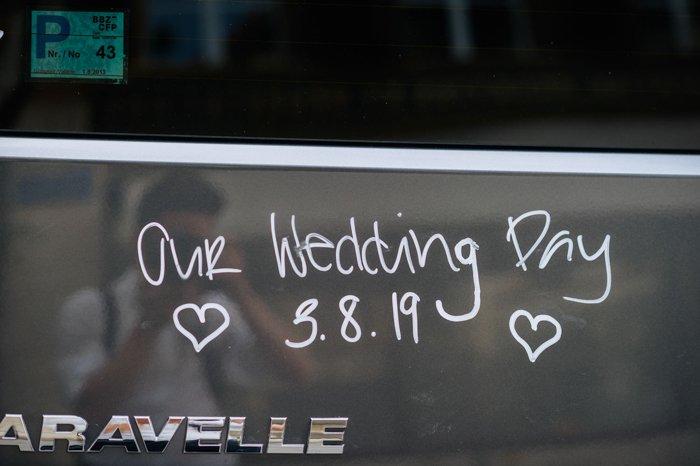 P
BBZ-
CFP
Nr. / No 43
1.8.2013
Our Wedding Day
3.8.19
ARAVELLE